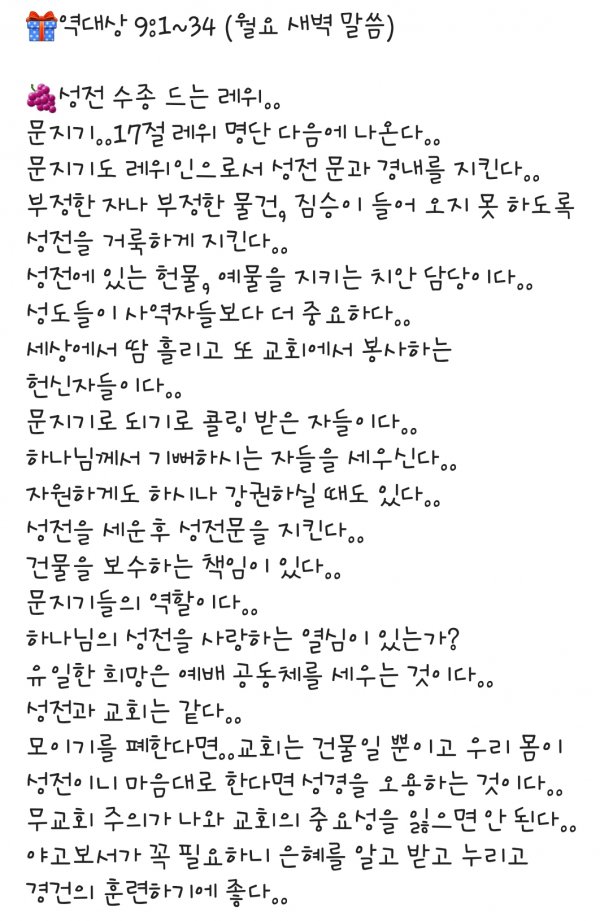 🎁역대상 9:1~34 (월요 새벽 말씀)
🍇성전 수종 드는 레위..
문지기..17절 레위 명단 다음에 나온다..
문지기도 레위인으로서 성전 문과 경내를 지킨다..
부정한 자나 부정한 물건, 짐승이 들어 오지 못 하도록
성전을 거룩하게 지킨다..
성전에 있는 헌물, 예물을 지키는 치안 담당이다..
성도들이 사역자들보다 더 중요하다..
세상에서 땀 흘리고 또 교회에서 봉사하는
헌신자들이다..
문지기로 되기로 콜링 받은 자들이다..
하나님께서 기뻐하시는 자들을 세우신다..
자원하게도 하시나 강권하실 때도 있다..
성전을 세운후 성전문을 지킨다..
건물을 보수하는 책임이 있다..
문지기들의 역할이다..
하나님의 성전을 사랑하는 열심이 있는가?
유일한 희망은 예배 공동체를 세우는 것이다..
성전과 교회는 같다..
모이기를 폐한다면..교회는 건물일 뿐이고 우리 몸이
성전이니 마음대로 한다면 성경을 오용하는 것이다..
무교회 주의가 나와 교회의 중요성을 잃으면 안 된다..
야고보서가 꼭 필요하니 은혜를 알고 받고 누리고
경건의 훈련하기에 좋다..